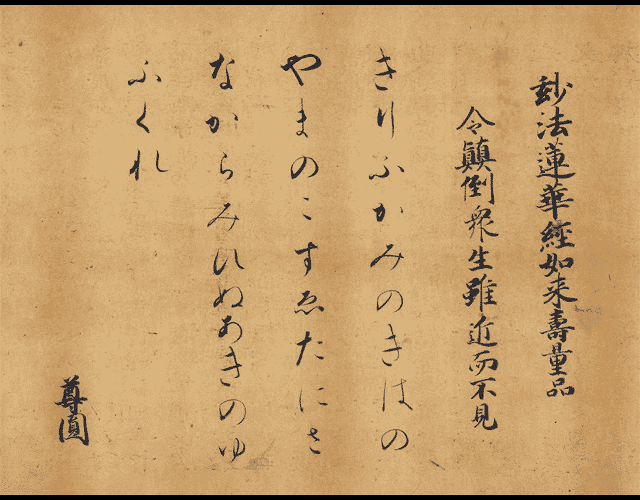 妙法蓮華經如来壽量品
令顛倒衆生雖近而不見
きりふかみのきはの
やまのこすゑたにさ
なからみひぬあきのゆ
ふくれ
尊圓